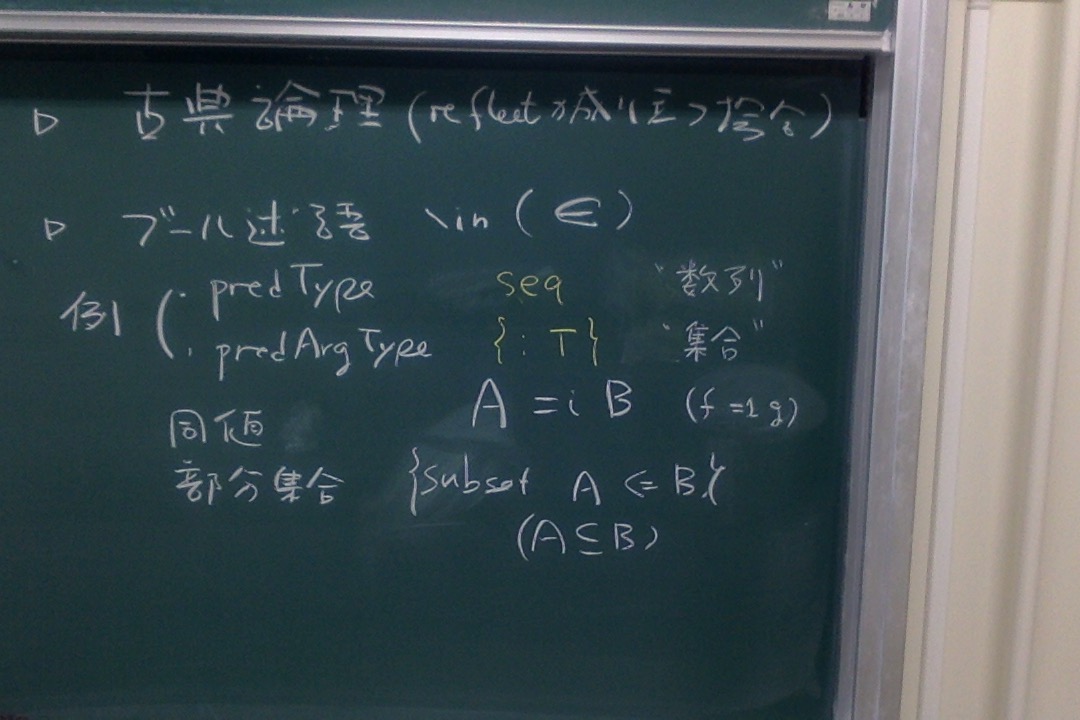 ▷ 古典論理 (reflectが成り立つ場合)
▷ ブール述語 \in (∈)
例 ( ・predType seq "数列"
・predArgType {: T} "集合"
A =i B (f =1 g)
同値
部分集合 {subset A <= B}
(A ⊆ B)